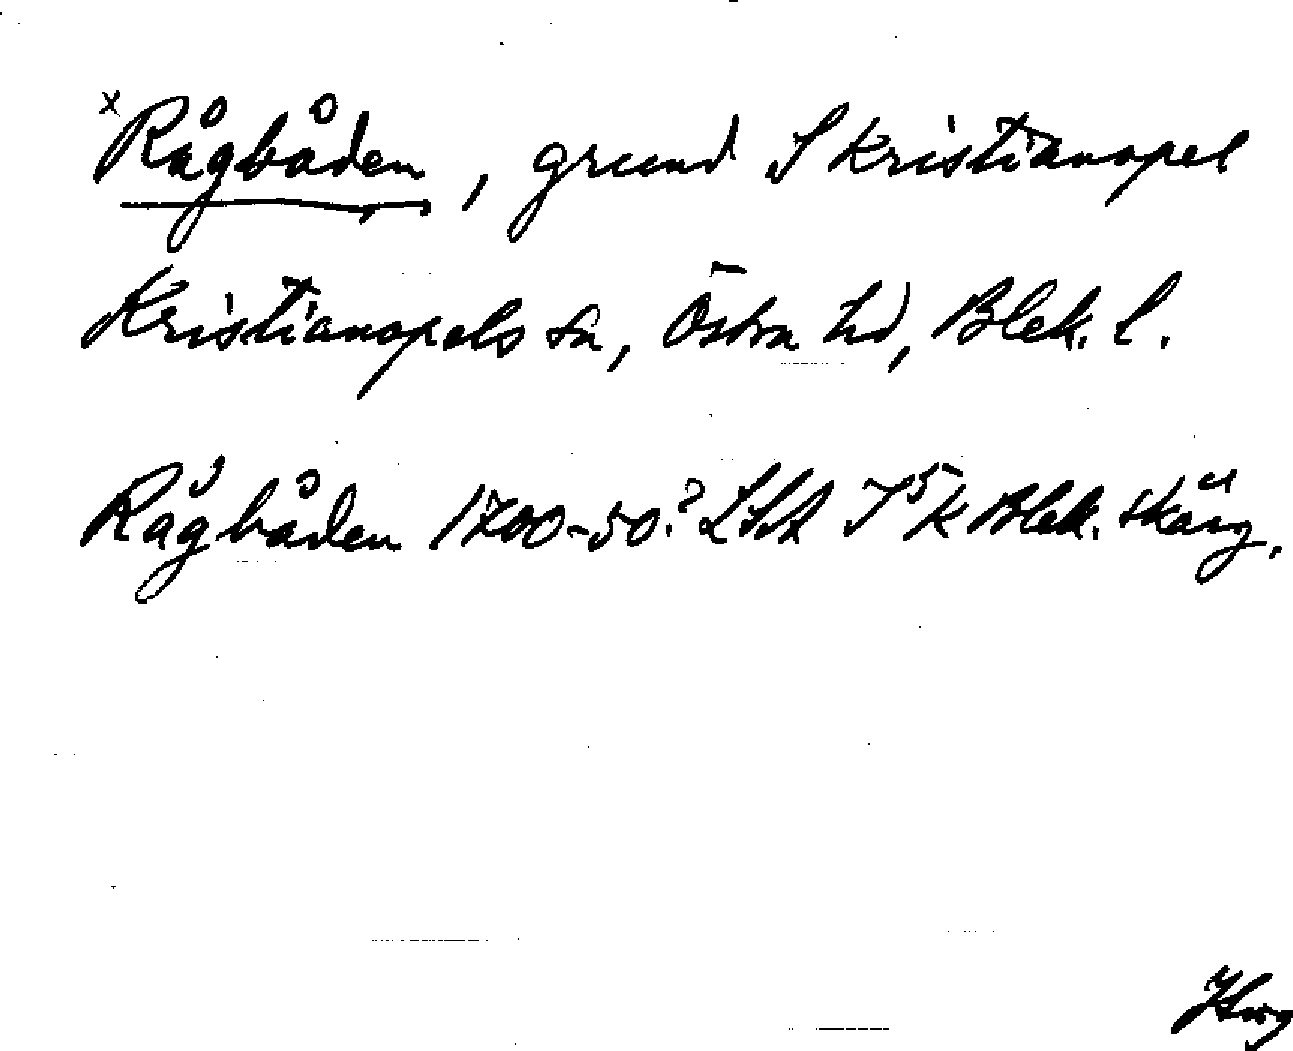 x Rågbåden, grund S Kristianopel
Kristianopels sn, Östra hd, Blek. l.
Rågbåden 1700-50? LSA Blek. skärg.